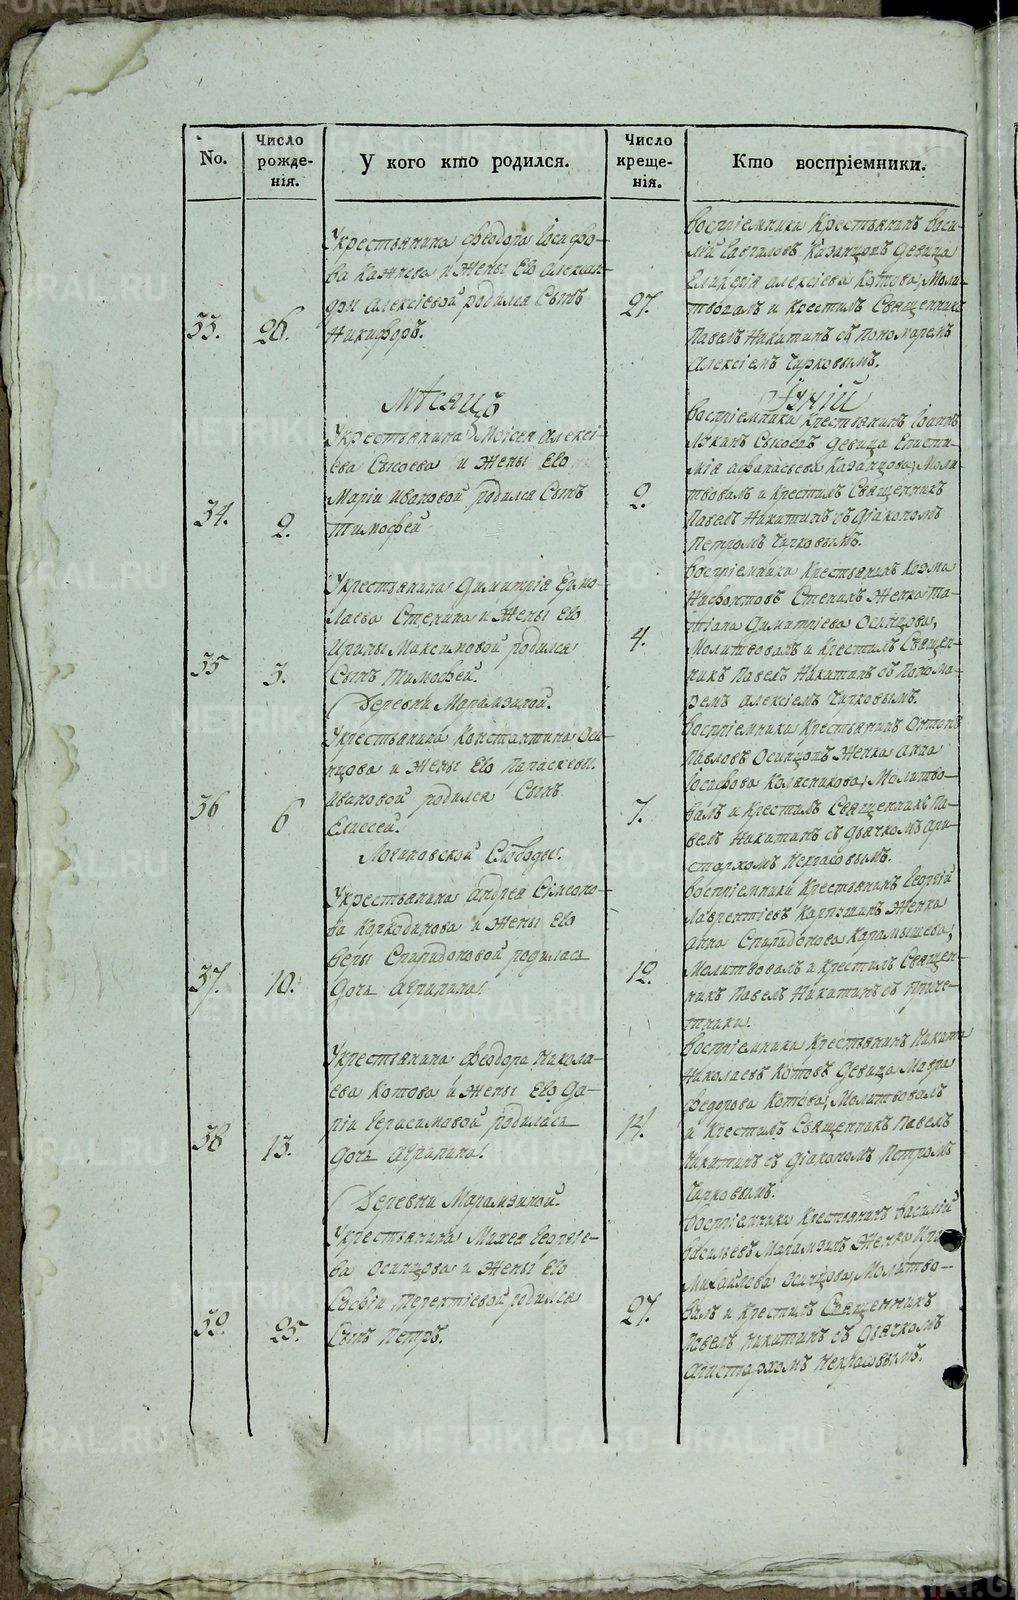 No.
Число
рожде-
нія.
У кого кто родился.
Число
креще-
нія.
Кто воспріемники.
33.
26.
Укрестьянина Феодора Іосафо-
ва и Жены Его Алексан-
дры Алексіевой родился Сынъ
Никифоръ.
27.
Воспріемники Крестьянинъ Васи-
лій Гавриловъ Казанцовъ Девица
Алексіева Котова, Моли-
твовалъ и Крестилъ Священникъ
Павелъ Никитинъ съ Пономаремъ
Алексіемъ Чирковымъ.
Мѣсяцъ Іуній
34.
2.
Укрестьянина Моисея Алексі-
ева Сысоева и Жены Его
Маріи Ивановой родился Сынъ
Тимофей
2.
Воспріемники Крестьянинъ Іоаннъ
Сысоевъ Девица Еписти-
мія Афанасьева Казанцова, Моли-
твовалъ и Крестилъ Священникъ
Павелъ Никитинъ съ Діакономъ
Петромъ Чирковымъ.
35
3.
Укрестьянина Димитрія Ермо-
лаева Степина и Жены Его
Ирины Максимовой родился
Сынъ Тимофей.
4.
Воспріемники Крестьянинъ Козма
Степинъ Женка Та-
тіана Димитріева Осинцова,
Молитвовалъ и Крестилъ Священ-
никъ Павелъ Никитинъ съ Понома-
ремъ Алексіемъ Чирковымъ.
Деревни Марамзиной.
36
6
Укрестьянина Константина Оси-
нцова и Жены Его Параскевы
Ивановой родился Сынъ
Елисей.
7.
Воспріемники Крестьянинъ Онтонъ
Павловъ Осинцовъ Женка Анна
Іосифова Колясникова, Молитво-
валъ и Крестилъ Священникъ Па-
велъ Никитинъ съ Дьячкомъ Ари-
стархомъ Некрасовымъ.
Логиновской Слободы.
37.
10.
Укрестьянина Андрея Симеоно-
ва Коркодинова и Жены Его
Веры Спиридоновой родилась
Дочь Агрипина.
12.
Воспріемники Крестьянинъ Георгій
Лаврентіевъ Женка
Анна Спиридонова Карамышева,
Молитвовалъ и Крестилъ Священ-
никъ Павелъ Никитинъ съ Приче-
тники.
38
13.
Укрестьянина Феодора Никола-
ева Котова и Жены Его Да-
ріи Герасимовой родилась
Дочь Агрипина.
14.
Воспріемники Крестьянинъ Никита
Николаевъ Котовъ Девица Мавра
Федорова Котова, Молитвовалъ
и Крестилъ Священникъ Павелъ
Никитинъ съ Діакономъ Петромъ
Чирковымъ.
Деревни Марамзиной.
39.
25.
Укрестьянина Михея Георгіе-
ва Осинцова и Жены Его
Софіи Терентіевой родился
Сынъ Петръ.
27.
Воспріемники Крестьянинъ Василій
Васильевъ Марамзинъ Женка
Михайлова Осинцова, Молитво-
валъ и Крестилъ Священникъ
Павелъ Никитинъ съ Дьячкомъ
Аристархомъ Некрасовымъ.
METRIKI.GASO-URAL.RU